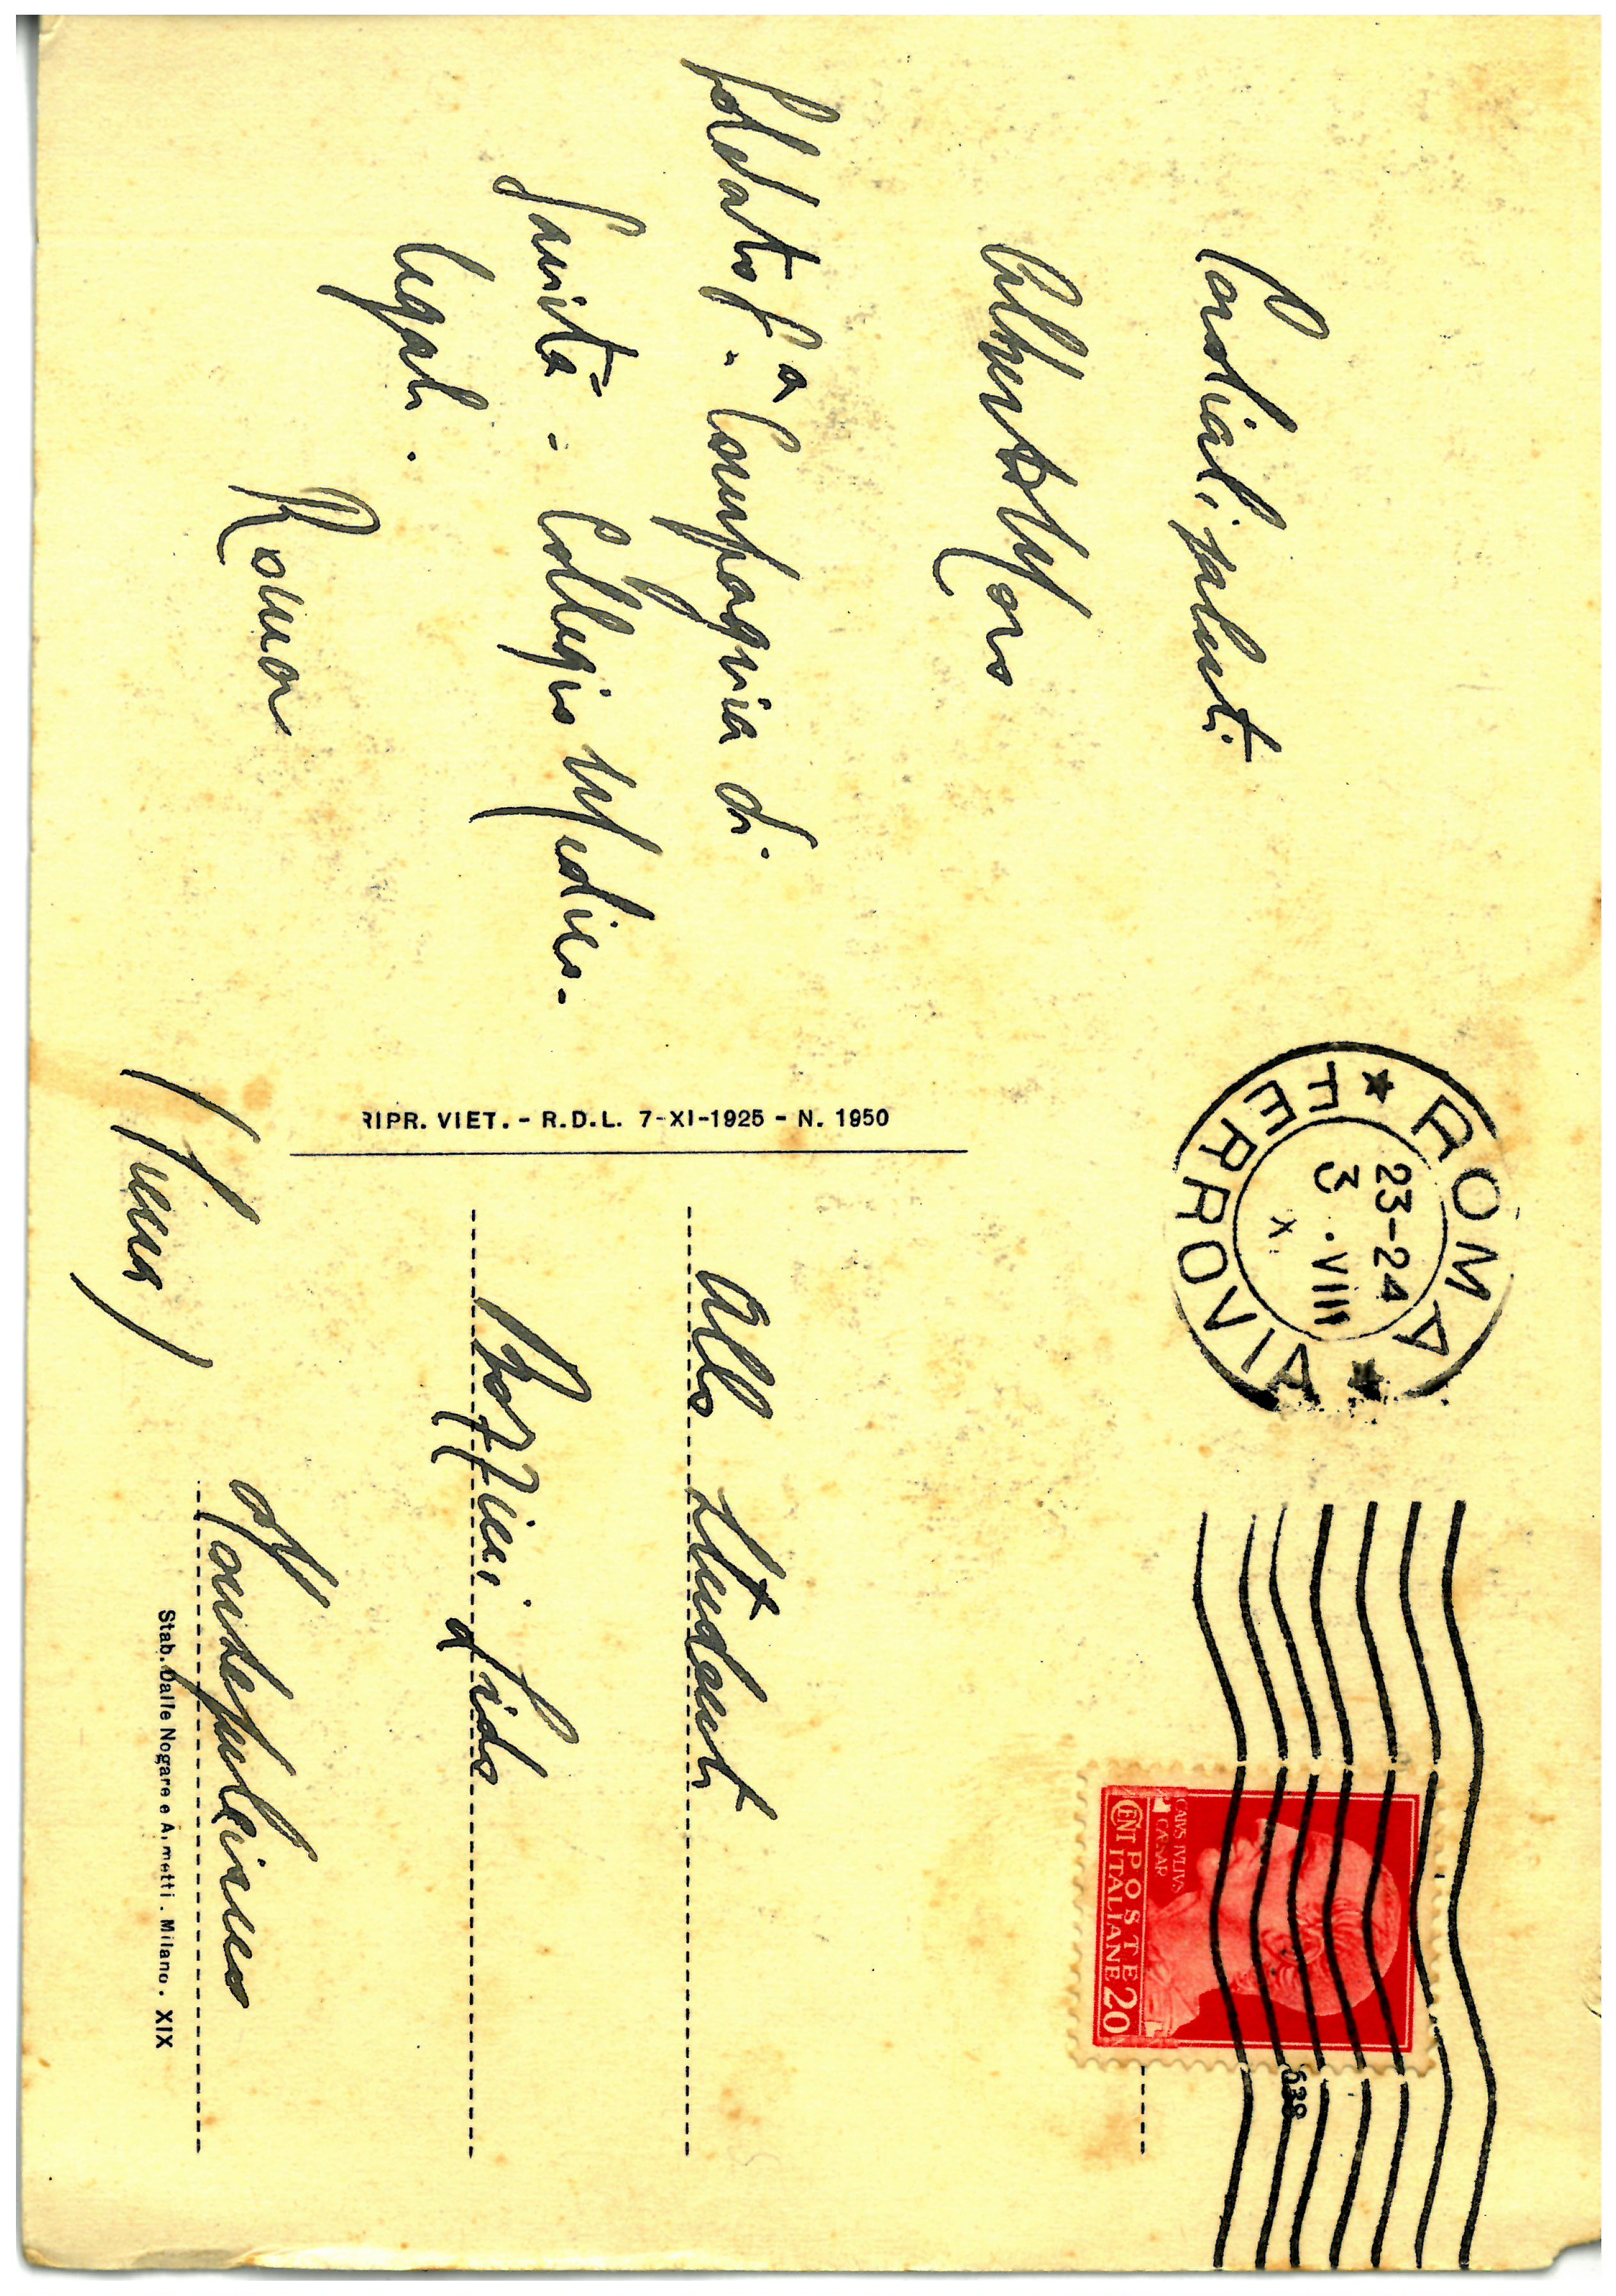 Cordiali saluti
Alberto Moro
Soldato 8ª Compagnia di
Sanità - Collegio Medico-
legale.
Roma
RIPR. VIET. - R.D.L. 7-XI-1925 - N. 1950
ROMA
FERROVIA
23-24
3 . VIII
X
CAIVS IVLIVS
CÆSAR
POSTE
ITALIANE
CENT 20
Allo studente
Lido
Montepulciano
(Siena)
Stab. Dalle Nogare e Armetti . Milano . XIX